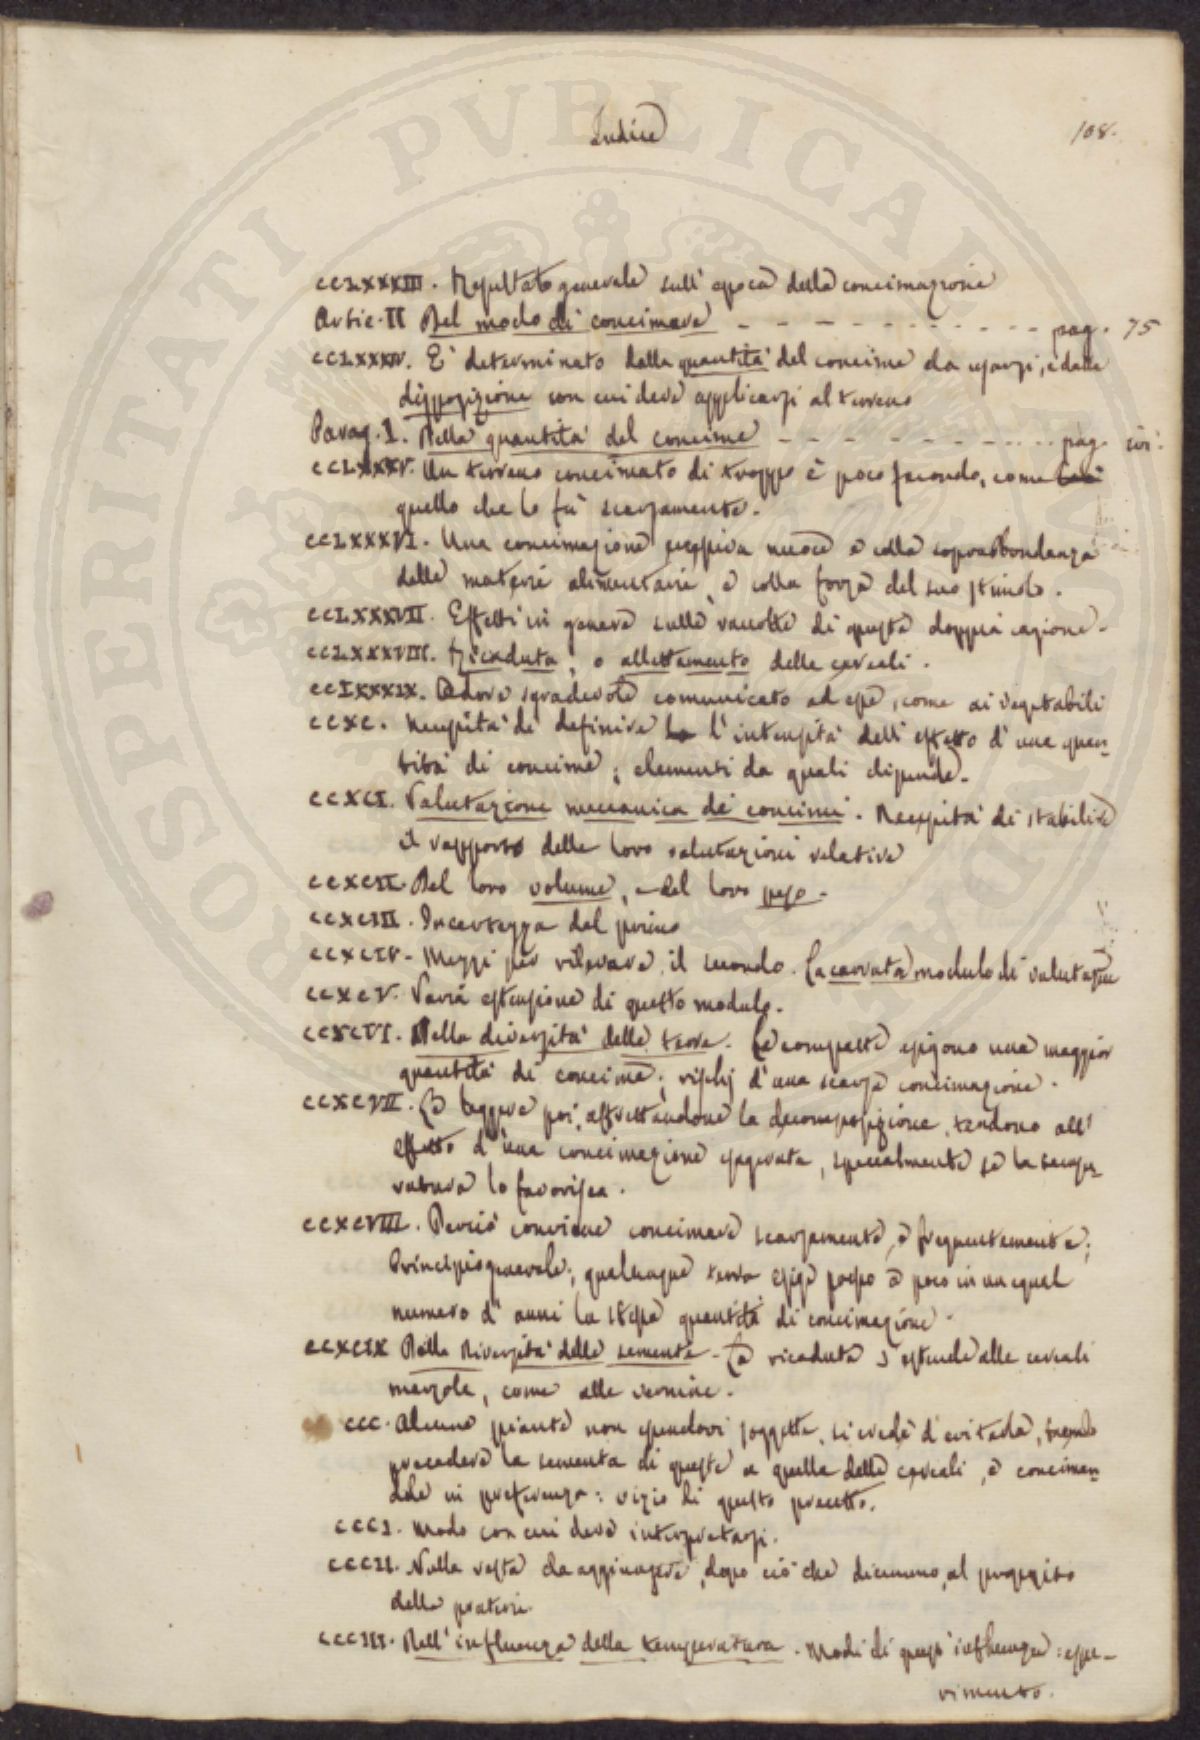 Indice
108.
CCLXXXIII. Resultato generale sull' epoca della concimazione
Artic. II Del modo di concimare - - - - - - - - - - - pag. 75
CCLXXXIV. E' determinato dalla quantità del concime da usarsi, e dalla
disposizione con cui deve applicarsi al terreno
Parag. 1. Della quantità del concime - - - - - - - - - - pag. ivi.
CCLXXXV. Un terreno concimato di troppo è poco fecondo, come
quello che lo fù scarsamente.
CCLXXXVI. Una concimazione eccessiva nuoce e colla soprabbondanza
delle materie alimentarie, e colla forza del suo stimolo.
CCLXXXVII. Effetti in genere sulle raccolte di questa doppia azione.
CCLXXXVIII. Ricaduta, o allettamento delle cereali.
CCLXXXIX. Odore sgradevole comunicato ad esse, come ai vegetabili
CCXC. Necessità di definire l'intensità dell' effetto d' una quan-
tità di concime; elementi da quali dipende.
CCXCI. Valutazione meccanica de' concimi. Necessità di stabilire
il rapporto delle loro valutazioni relative
CCXCII. Del loro volume, e del loro peso.
CCXCIII. Incertezza del primo
CCXCIV. Mezzi per rilevare il secondo. La carrata modulo di valutazione
CCXCV. Varia estensione di questo modulo.
CCXCVI. Della diversità delle terre. Le compatte esigono una maggior
quantità di concime; rischj d'una scarsa concimazione.
CCXCVII. Le leggere poi, affrettandone la decomposizione, tendono all'
effetto d' una concimazione esagerata, specialmente se la temper-
ratura lo favorisca.
CCXCVIII. Perciò conviene concimare scarsamente, e frequentemente;
Principio generale; qualunque terra esige presso a poco in un egual
numero d' anni la stessa quantità di concimazione.
CCXCIX Della diversità delle sementi. La ricaduta s' estende alle cereali
marzole, come alle vernine.
CCC. Alcune piante non essendovi soggette, si crede d' evitarla, facendo
precedere la sementa di queste a quella delle cereali, e conciman-
dole in preferenza: vizio di questo precetto.
CCCI. Modo con cui deve interpretarsi.
CCCII. Nulla resta da aggiugnere, dopo ciò che dicemmo, al proposito
delle praterie.
CCCIII. Dell' influenza della temperatura. Modi di quest' influenza: espe-
rimento.